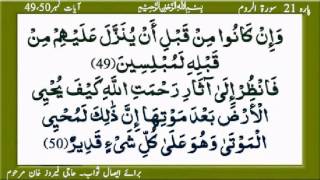 پارہ 21 سورۃ الروم بِسْمِ اللّٰہِ الرَّحْمٰنِ الرَّحِیْمِ آیات نمبر 50،49
وَإِن كَانُوا مِن قَبْلِ أَن يُنَزَّلَ عَلَيْهِم مِّن
قَبْلِهِ لَمُبْلِسِينَ (49)
فَانظُرْ إِلَىٰ آثَارِ رَحْمَتِ اللَّهِ كَيْفَ يُحْيِي
الْأَرْضَ بَعْدَ مَوْتِهَا إِنَّ ذَٰلِكَ لَمُحْيِي
الْمَوْتَىٰ وَهُوَ عَلَىٰ كُلِّ شَيْءٍ قَدِيرٌ (50)
برائے ایصال ثواب۔ حاجی فیروز خان مرحوم